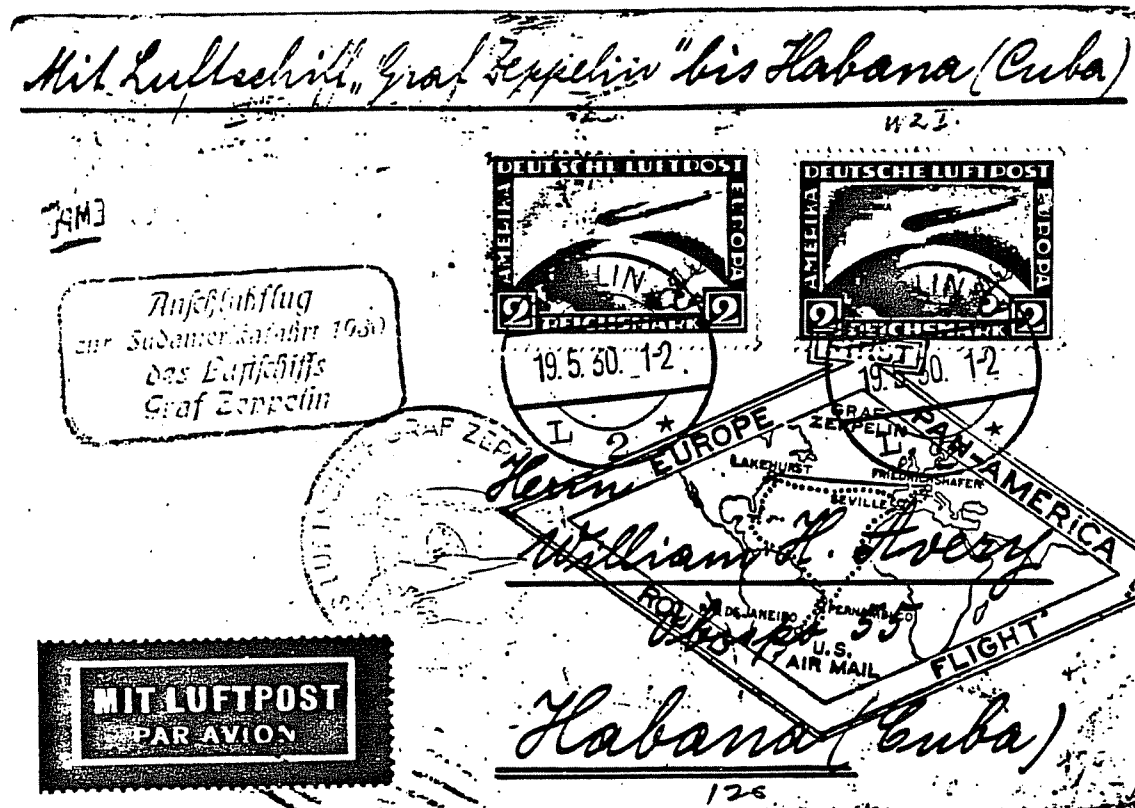 Mit Luftschiff „Graf Zeppelin" bis Habana (Cuba)
DEUTSCHE LUFTPOST
AMERIKA
EUROPA
2 2
REICHSMARK
DEUTSCHE LUFTPOST
AMERIKA
EUROPA
2 2
REICHSMARK
Anschlußflug
zur Südamerikafahrt 1930
des Luftschiffs
Graf Zeppelin
LIN
19.5.30. 1-2
L 2 *
LIN
19.5.30. 1-2
L *
LUFTSCHIFF GRAF ZEPP
FIRST
EUROPE PAN-AMERICA
ROUND FLIGHT
GRAF
ZEPPELIN
LAKEHURST
FRIEDRICHSHAFEN
SEVILLE
RIO DE JANEIRO
PERNAMBUCO
U.S.
AIR MAIL
Herrn
William H. Avery
55
Habana (Cuba)
126
MIT LUFTPOST
PAR AVION